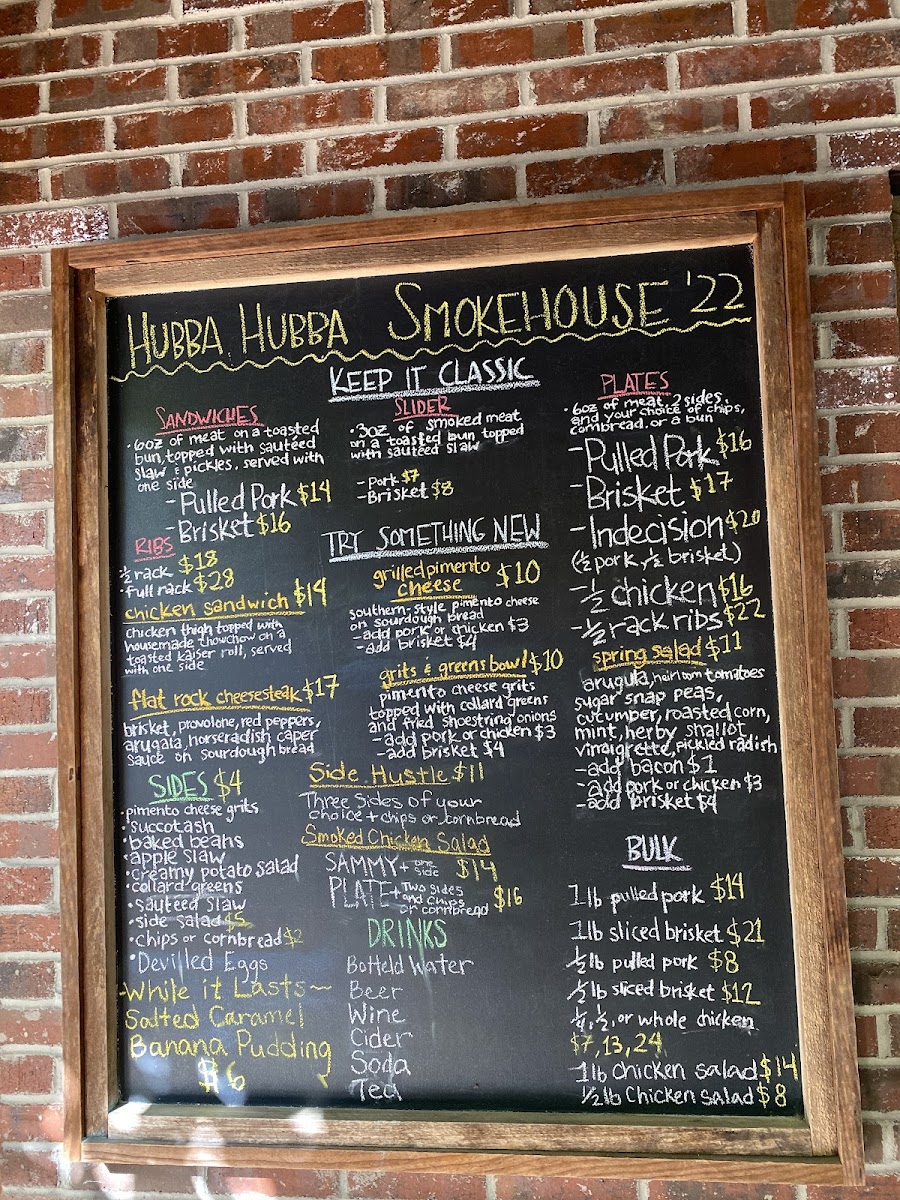 HUBBA HUBBA SMOKEHOUSE '22
KEEP IT CLASSIC
SANDWICHES
• 6oz of meat on a toasted
bun, topped with sautéed
slaw & pickles, served with
one side
- Pulled Pork $14
- Brisket $16
RIBS
• ½ rack $18
• full rack $28
chicken sandwich $14
chicken thigh topped with
housemade chowchow on a
toasted kaiser roll, served
with one side
flat rock cheesesteak $17
brisket, provolone, red peppers,
arugala, horseradish caper
sauce on sourdough bread
SIDES $4
• pimento cheese grits
• succotash
• baked beans
• apple slaw
• creamy potato salad
• collard greens
• sautéed slaw
• side salad $5
• chips or cornbread $2
• Devilled Eggs
~While it Lasts~
Salted Caramel
Banana Pudding
$6
SLIDER
• 3oz of smoked meat
on a toasted bun, topped
with sautéed slaw
- Pork $7
- Brisket $8
TRY SOMETHING NEW
grilled pimento
cheese $10
southern-style pimento cheese
on sourdough bread
- add pork or chicken $3
- add brisket $4
grits & greens bowl $10
pimento cheese grits
topped with collard greens
and fried shoestring onions
- add pork or chicken $3
- add brisket $4
Side Hustle $11
Three Sides of your
choice + chips or cornbread
Smoked Chicken Salad
SAMMY + one side $14
PLATE + Two sides
and chips
or cornbread $16
DRINKS
Botteld Water
Beer
Wine
Cider
Soda
Tea
PLATES
• 6oz of meat, 2 sides,
and your choice of chips,
cornbread, or a bun
- Pulled Pork $16
- Brisket $17
- Indecision $20
(½ pork, ½ brisket)
- ½ chicken $16
- ½ rack ribs $22
spring salad $11
arugula, heirloom tomatoes
sugar snap peas,
cucumber, roasted corn,
mint, herby shallot
vinaigrette, pickled radish
- add bacon $1
- add pork or chicken $3
- add brisket $4
BULK
1 lb pulled pork $14
1 lb sliced brisket $21
½ lb pulled pork $8
½ lb sliced brisket $12
¼, ½, or whole chicken
$7, 13, 24
1 lb chicken salad $14
½ lb Chicken salad $8